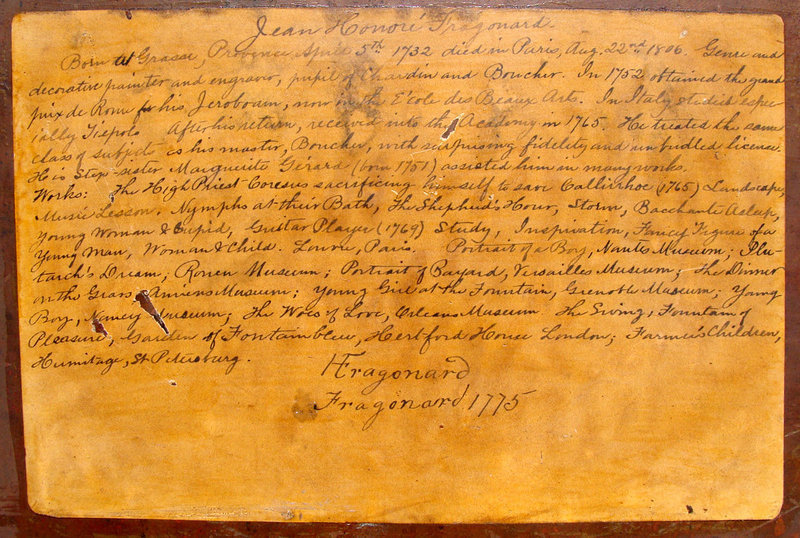 Jean Honoré Fragonard.
Born at Grasse, Provence April 5th 1732 died in Paris, Aug. 22nd 1806. Genre and
decorative painter and engraver, pupil of Chardin and Boucher. In 1752 obtained the grand
prix de Rome for his Jeroboam, now in the École des Beaux Arts. In Italy studied espec-
ially Tiepolo After his return, received into the Academy in 1765. He treated the same
class of subject as his master, Boucher, with surprising fidelity and unbridled license.
His Step-sister Marguerite Gérard (born 1751) assisted him in many works.
Works: The High Priest Coresus sacrificing himself to save Callirrhoe (1765) Landscape,
Music Lesson. Nymphs at their Bath, The Shepherd's Hour, Storm, Bacchante Asleep,
Young Woman & Cupid, Guitar Player (1769) Study, Inspiration, Fancy Figure of a
Young Man, Woman & Child. Louvre, Paris. Portrait of a Boy, Nantes Museum; Plu-
tarch's Dream, Rouen Museum; Portrait of Bayard, Versailles Museum; The Dinner
on the Grass Amiens Museum; Young Girl at the Fountain, Grenoble Museum. Young
Boy, Nancy Museum; The Woes of Love, Orleans Museum The Swing, Fountain of
Pleasure, Garden of Fontainbleu, Hertford House London; Farmer's Children,
Hermitage, St Petersburg.
HFragonard
Fragonard 1775